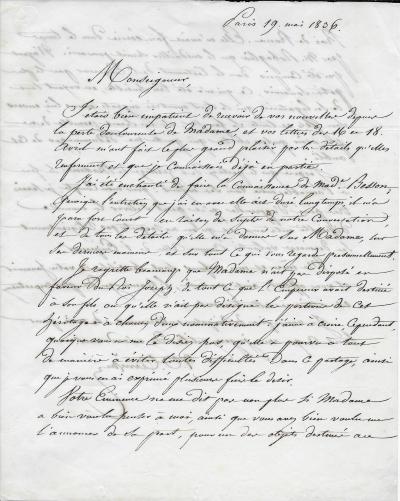 Paris 19 mai 1836.
Monseigneur,
J'étais bien impatient de recevoir de vos nouvelles depuis
la perte douloureuse de Madame, et vos lettres des 16 et 18
avril m'ont fait le plus grand plaisir par les détails qu'elles
renferment et que je connaissais déjà en partie.
J'ai été enchanté de faire la connaissance de Mad.e Besson,
quoique l'entretien que j'ai eu avec elle ait duré longtemps, il m'a
paru fort court en raison du sujet de notre conversation,
et de tous les détails qu'elle m'a donnés sur Madame, sur
ses derniers moments et sur tout ce qui vous regarde personnellement.
Je regrette beaucoup que Madame n'ait pas disposé en
faveur du Roi Joseph de tout ce que l'Empereur avait destiné
à son fils ou qu'elle n'ait pas désigné la portion de cet
héritage à chacun d'eux nominativement; j'aime à croire cependant,
quoique vous ne me le disiez pas, qu'elle a pourvu à tout
de manière à éviter toutes difficultés dans ce partage, ainsi
que je vous en ai exprimé plusieurs fois le désir.
Votre Eminence ne me dit pas non plus si Madame
a bien voulu penser à moi, ainsi que vous avez bien voulu me
l'annoncer de sa part, pour un des objets destinés au